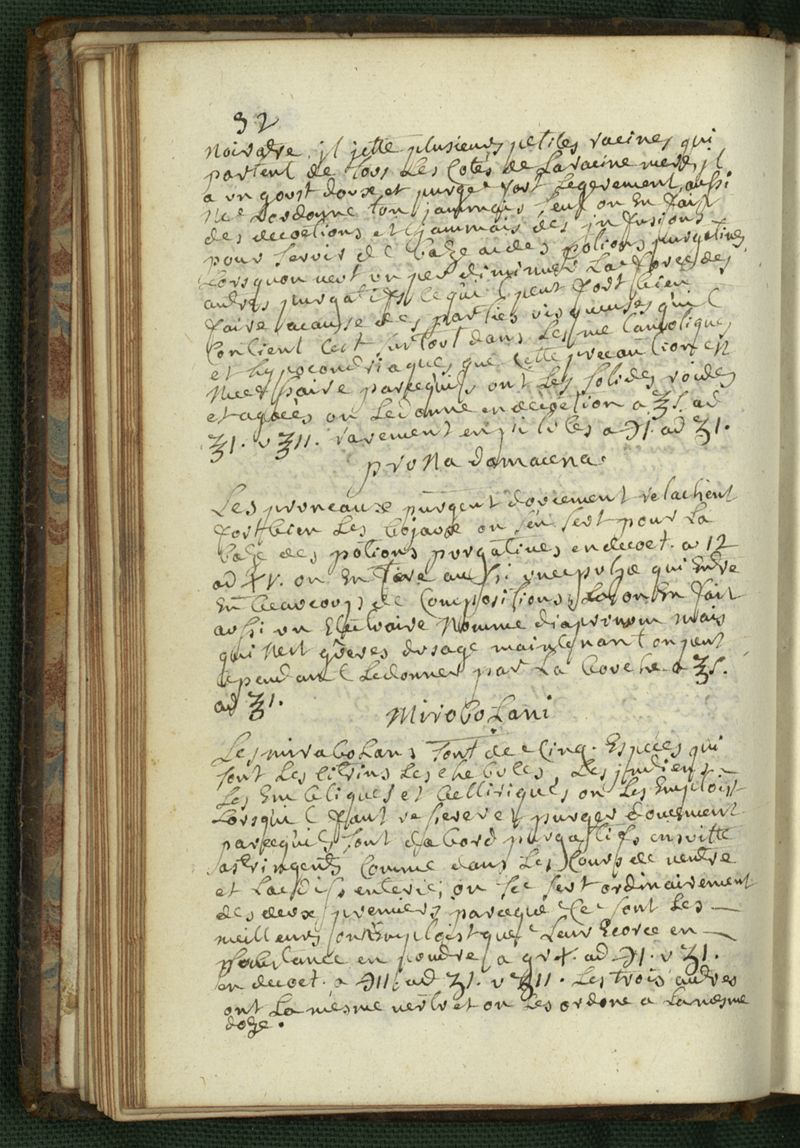 32
Noiratre, jl jette plusieurs petites racines qui
partent de tous Les Cotés de La racine mere, jl
a vn goust doux et purge fort Legerement, aussi
Ne Lordonne ton jammais seul on En fait
des decoctions et jammais des jnfusions
pour servir de baze aides potions purgatives
Lorsquon veut vn peu diminuer La force des
autres purgatifs ce qu'il peut fort bien
faire acause des parties visqueuses qu'il
Contient Cest surtout dans Les melancoliques
et hypocondriaques que Cette precaution est
Necessaire parcequils ont Les solides roides
et agacés on Ledonne endecoction a ʒſ. ad
ʒ1. v ʒ11. rarement en pilules a ℈1. ad ʒ1.
pruna damacena.
Les pruneaux purgent doucement relachent
fort bien Les bojaux on s'en sert pour La
baze des potions purgatives endecoct. a 12
ad xv. on En tire aussi vne pulpe qui Entre
En beaucoup de Compositions, La on En fait
aussi vn Electuaire Nomme diaprunum mais
qui Nest gueres dusage maintenant on peut
Cependant Ledonner par La bouche a ʒſ.
ad ʒ1.
MiroboLani
Les miraboLans sont de Cinq. Especes qui
sont Les Citrins Les chebules, Les jndiens
Les Embliques et belliriques on Les Emploit
Lorsqu'il faut resserer et purger doucement
parcequils sont dabord purgatifs ensuitte
astringents Comme dans Les Cours de ventre
et La dissenterie, on sce sert ordinairement
des deux premiers parceque Ce sont Les
meilleurs on Nemploist que Leur Ecorce en
substance en poudre a gr x. ad ℈1. v ʒ1.
en decoct. a ℈11. ad ʒ1. v ʒ11. Les trois autres
ont La mesme vertu et on Les ordone a La mesme
doze.